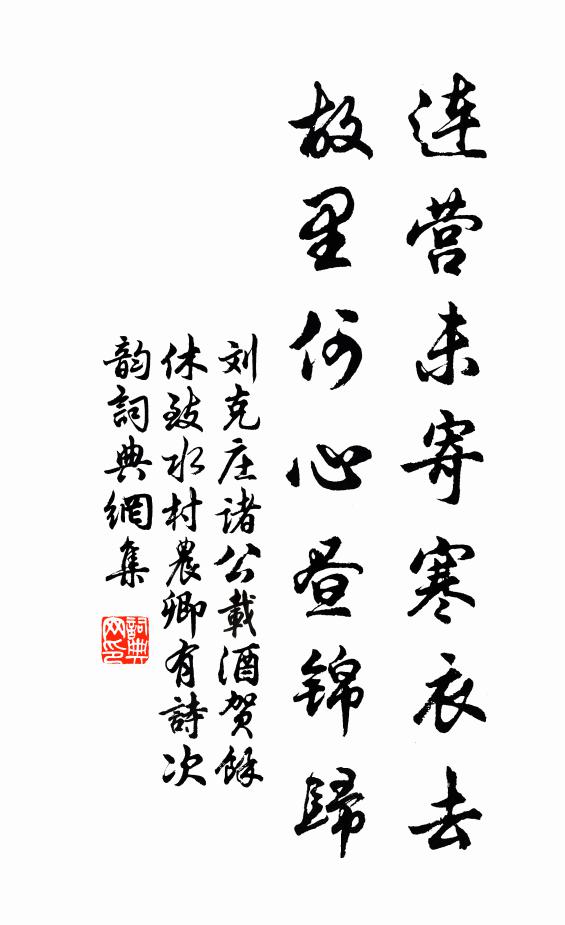 连营未寄寒衣去
故里何心昼锦歸
刘克庄诸公載酒贺餘
休致水村農卿有詩次
韵詞典網集
詞典
网印